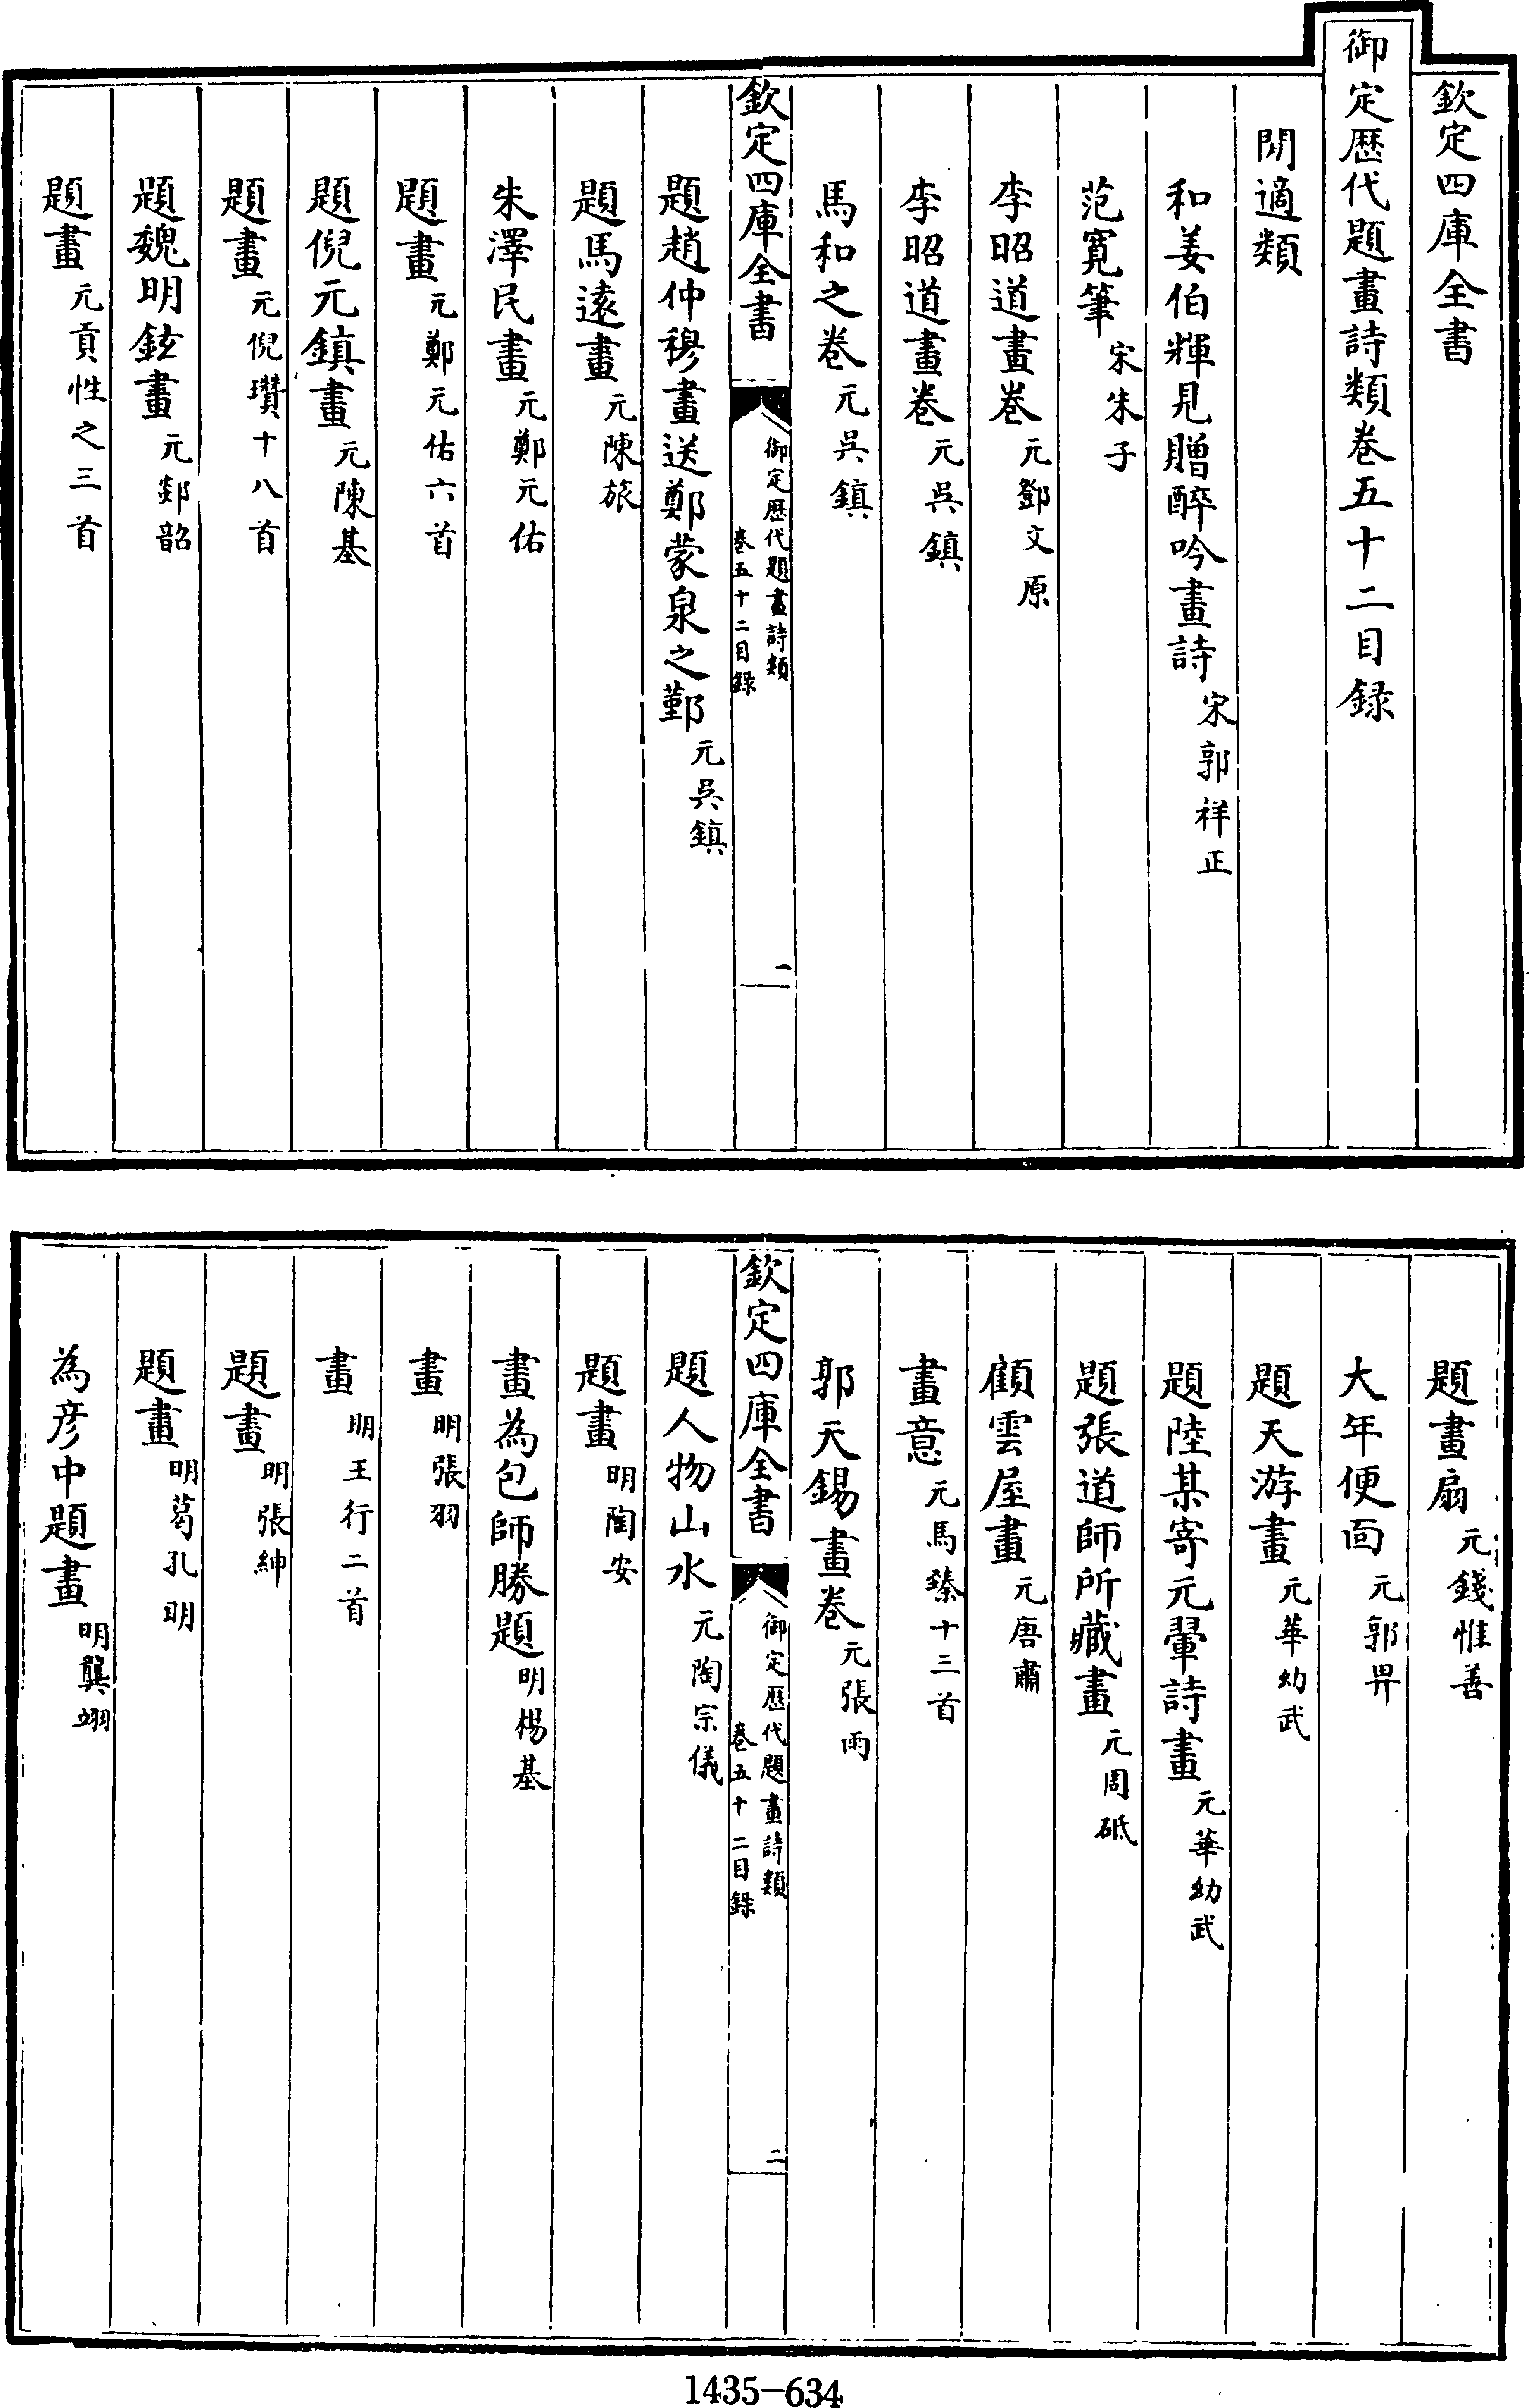 欽定四庫全書
御定歷代題畫詩類卷五十二目録
閒適類
和姜伯輝見贈醉吟畫詩 宋郭祥正
范寛筆 宋朱子
李昭道畫卷 元鄧文原
李昭道畫卷 元吳鎮
馬和之卷 元吳鎮
欽定四庫全書
御定歷代題畫詩類
卷五十二目錄
一
題趙仲穆畫送鄭蒙泉之鄞 元吳鎮
題馬遠畫 元陳旅
朱澤民畫 元鄭元佑
題畫 元鄭元佑六首
題倪元鎮畫 元陳基
題畫 元倪瓚十八首
題魏明鉉畫 元郯韶
題畫 元貢性之三首
題畫扇 元錢惟善
大年便面 元郭畀
題天游畫 元華幼武
題陸某寄元翬詩畫 元華幼武
題張道師所藏畫 元周砥
顧雲屋畫 元唐肅
畫意 元馬臻十三首
郭天錫畫卷 元張雨
欽定四庫全書
御定歷代題畫詩類
卷五十二目錄
二
題人物山水 元陶宗儀
題畫 明陶安
畫為包師勝題 明楊基
畫 明張羽
畫 明王行二首
題畫 明張紳
題畫 明葛孔明
為彦中題畫 明龔翊
1435-634